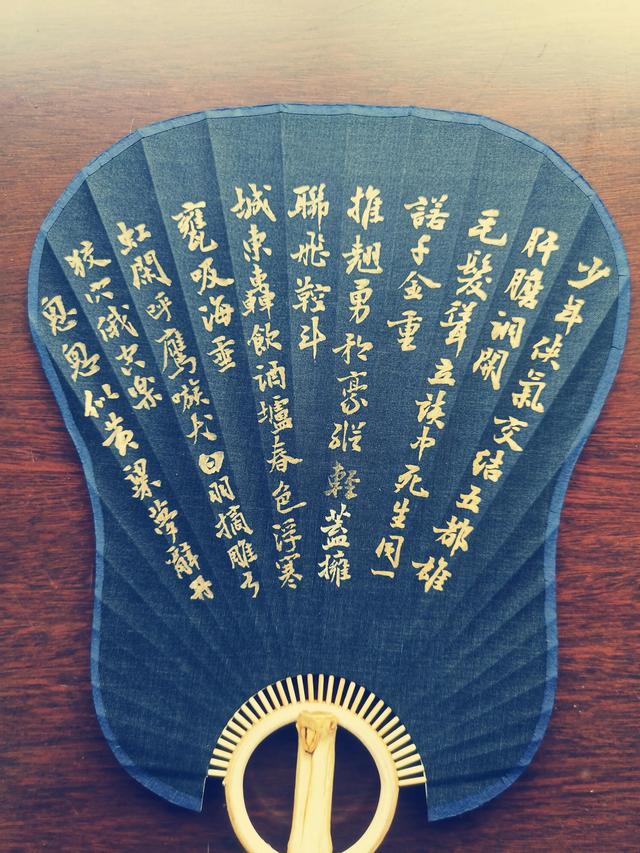 少年俠氣交結五都雄
肝膽洞開
毛髮聳立談中死生同一
諾千金重
推翹勇矜豪縱輕蓋擁
聯飛鞚斗
城東轟飲酒壚春色浮寒
甕吸海垂
虹閑呼鷹嗾犬白羽摘雕弓
狡穴俄空樂
怱怱似黄粱夢辭丹